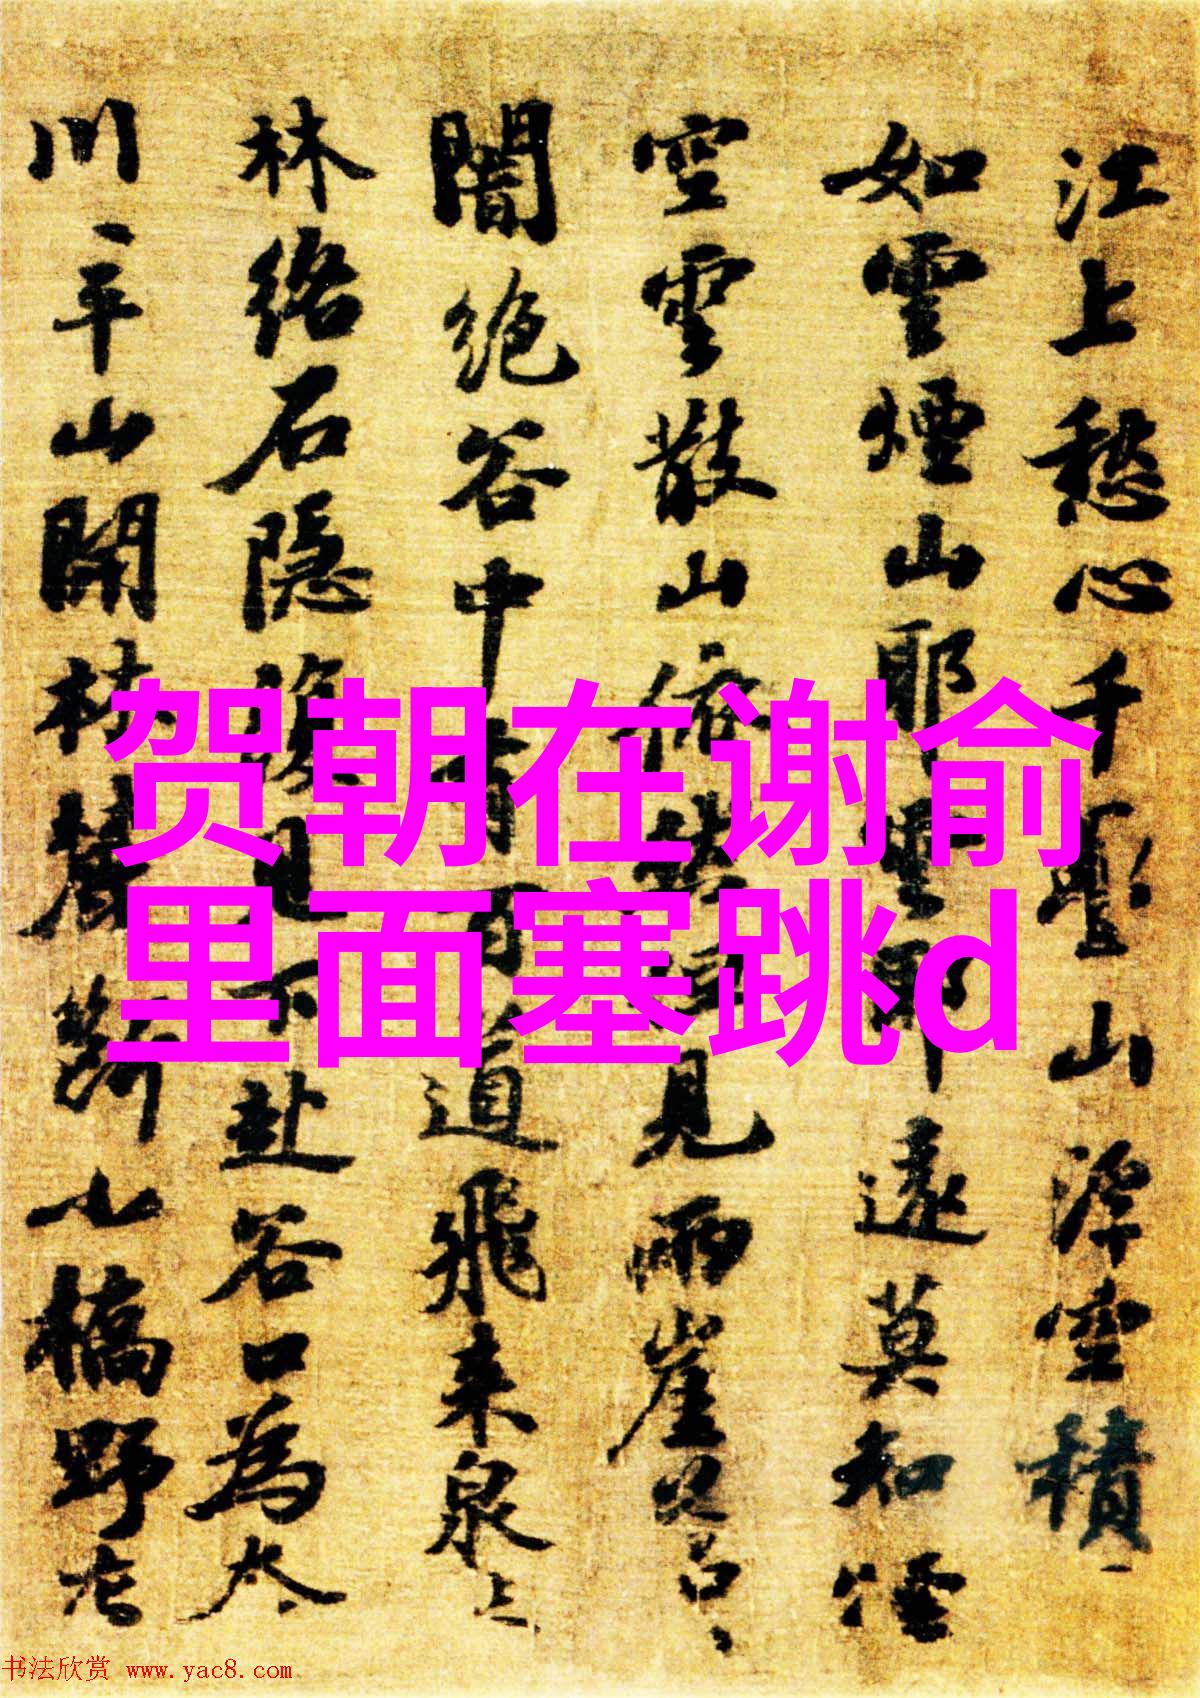 江上愁心千疊山浮空積
如雲煙山耶雲耶遠莫知煙
空雲散山依然但見兩崖蒼
闇絶谷中有百道飛來泉
林絡石隱復見下赴谷口為
川平山開林麓斷小橋野店
贺朝在谢俞
里面塞跳d
书法欣赏 www.yac8.com